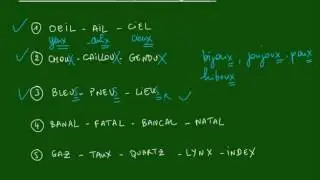 ① OEIL - AIL - CIEL
yeux aulx cieux
② CHOUX - CAILLOUX - GENOUX bijoux, joujoux, poux
hiboux
③ BLEUS - PNEUS - LIEUS
④ BANAL - FATAL - BANCAL - NATAL
⑤ GAZ - TAUX - QUARTZ - LYNX - INDEX